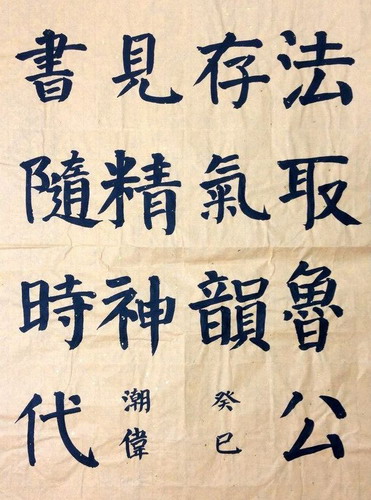 法取魯公
存氣韻
癸巳
書隨時代
見精神
潮偉